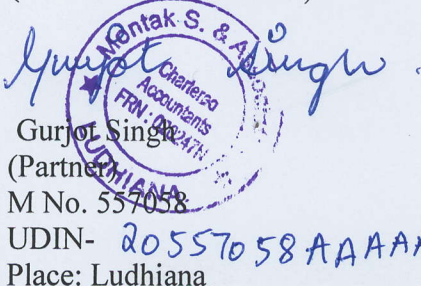 Gurjot Singh
Montak S. & A
Chartered
Accountants
FRN :
LUDHIANA
Gurjot Singh
(Partner)
M No. 557058
UDIN- 20557058AAAAA
Place: Ludhiana